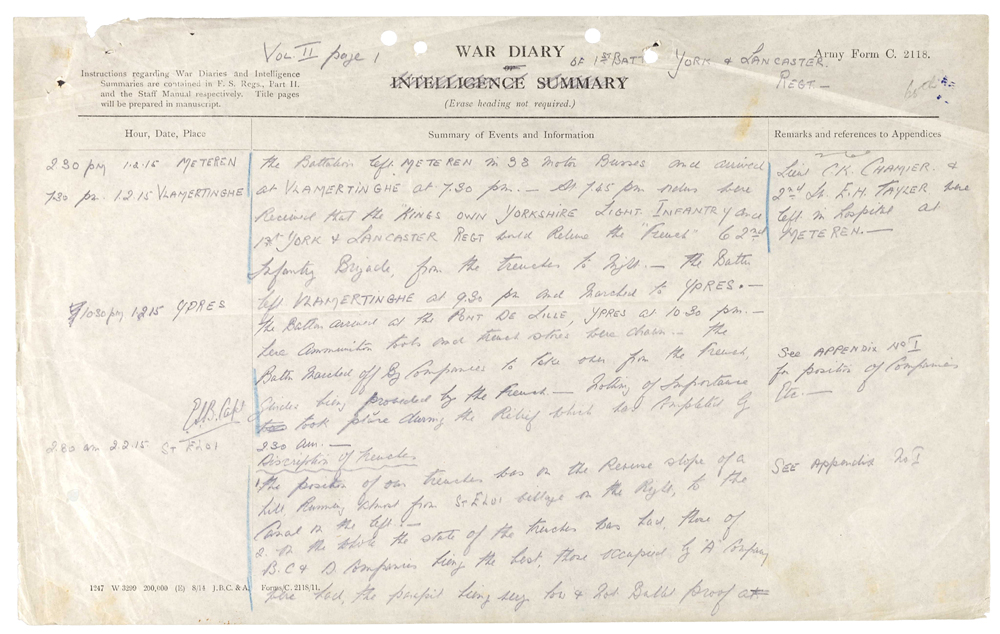 Vol II page 1
WAR DIARY
or
INTELLIGENCE SUMMARY
(Erase heading not required.)
OF 1ST BATT YORK & LANCASTER
REGT —
Army Form C. 2118.
Instructions regarding War Diaries and Intelligence
Summaries are contained in F. S. Regs., Part II.
and the Staff Manual respectively. Title pages
will be prepared in manuscript.
Hour, Date, Place
Summary of Events and Information
Remarks and references to Appendices
2 30 pm 1.2.15 METEREN
the Battalion left METEREN in 38 Motor Busses and arrived
7.30 pm 1.2.15 VLAMERTINGHE
at VLAMERTINGHE at 7.30 pm. — At 7.45 pm orders were
Received that the "KINGS OWN YORKSHIRE LIGHT INFANTRY and
1st YORK & LANCASTER REGT would Relieve the "French" 62nd
Infantry Brigade, from the trenches to night. — the Battn
left VLAMERTINGHE at 9.30 pm and Marched to YPRES. —
10.30 pm 1.2.15 YPRES
the Battn arrived at the PONT DE LILLE, YPRES at 10 30 pm. —
here Ammunition tools and trench stores were drawn — the
Battn Marched off By Companies to take over from the French,
Guides being provided by the French — Nothing of Importance
took place during the Relief which was completed by
2 30 am. —
2.30 am 2.2.15 ST ELOI
Discription of trenches
1 the position of our trenches was on the Reverse slope of a
hill Running almost from St ELOI village on the Right, to the
Canal on the left. —
2. On the whole the state of the trenches was bad, those of
B. C & D Companies being the best, those occupied by "A" Company
were bad, the parapit being very low & Not Bullet proof at
Lieut C.K. CHAMIER &
2nd Lt. E.H. TAYLER were
left in hospital at
METEREN. —
See APPENDIX No I
for position of Companies
Etc. —
SEE Appendix No I
1247 W 3299 200,000 (E) 8/14 J.B.C. & A. Forms/C. 2118/11.